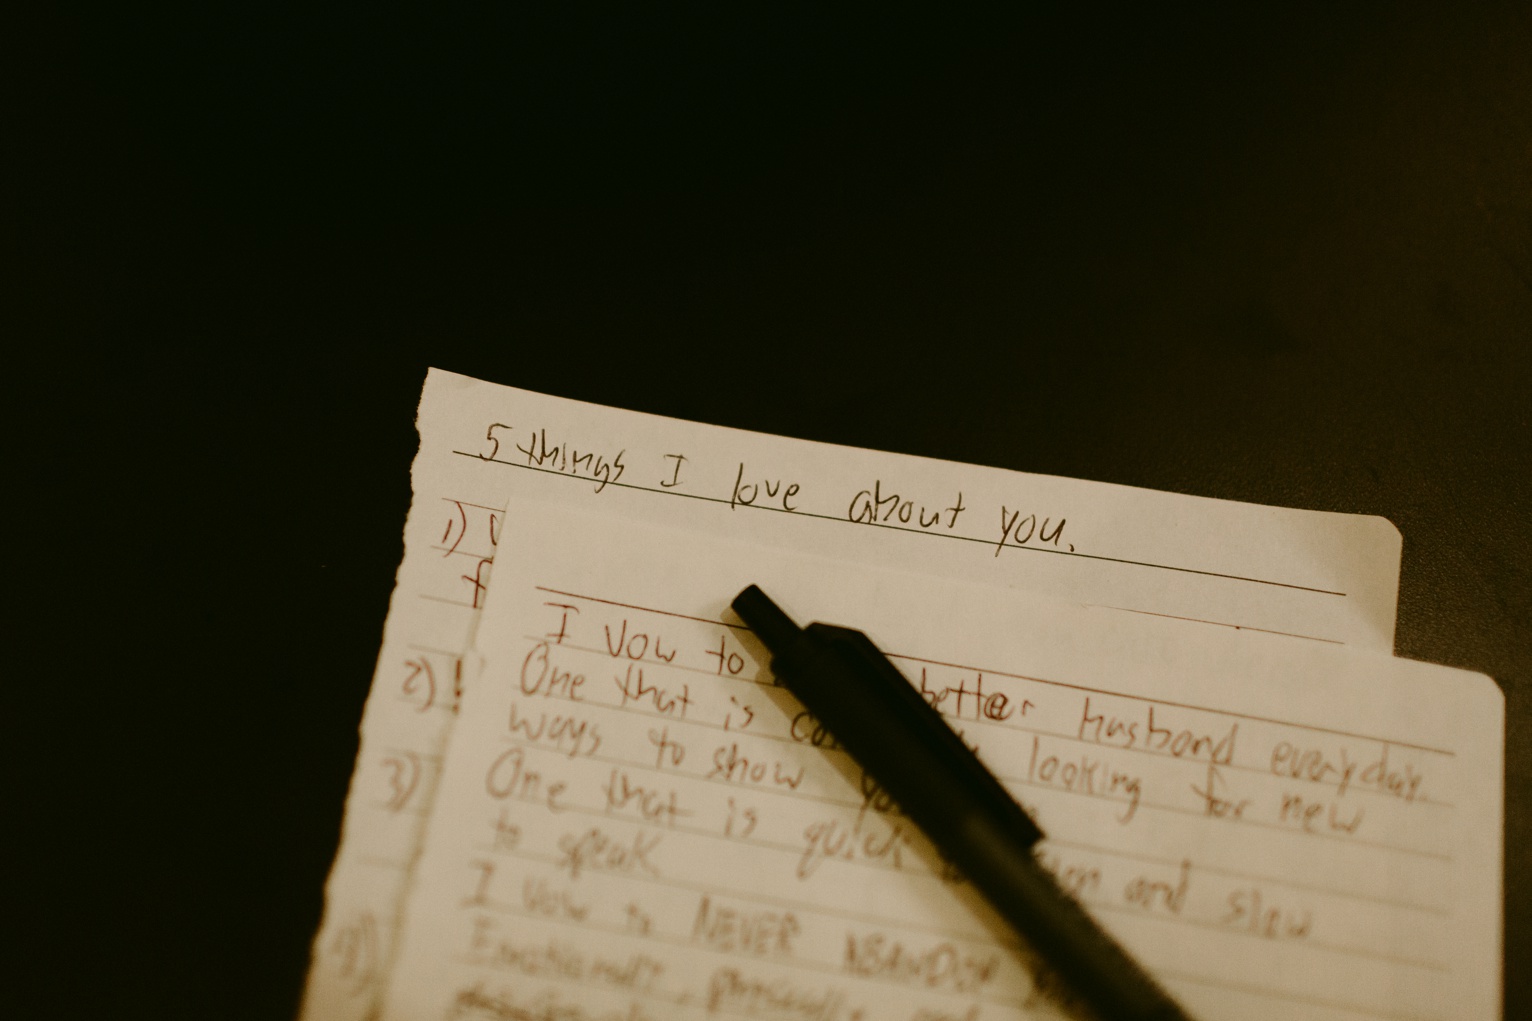 5 things I love about you.
1)
2)
3)
I vow to better husband everyday.
One that is looking for new
ways to show
One that is quick and slow
to speak
I vow to NEVER ABANDON
Emotionally, physically